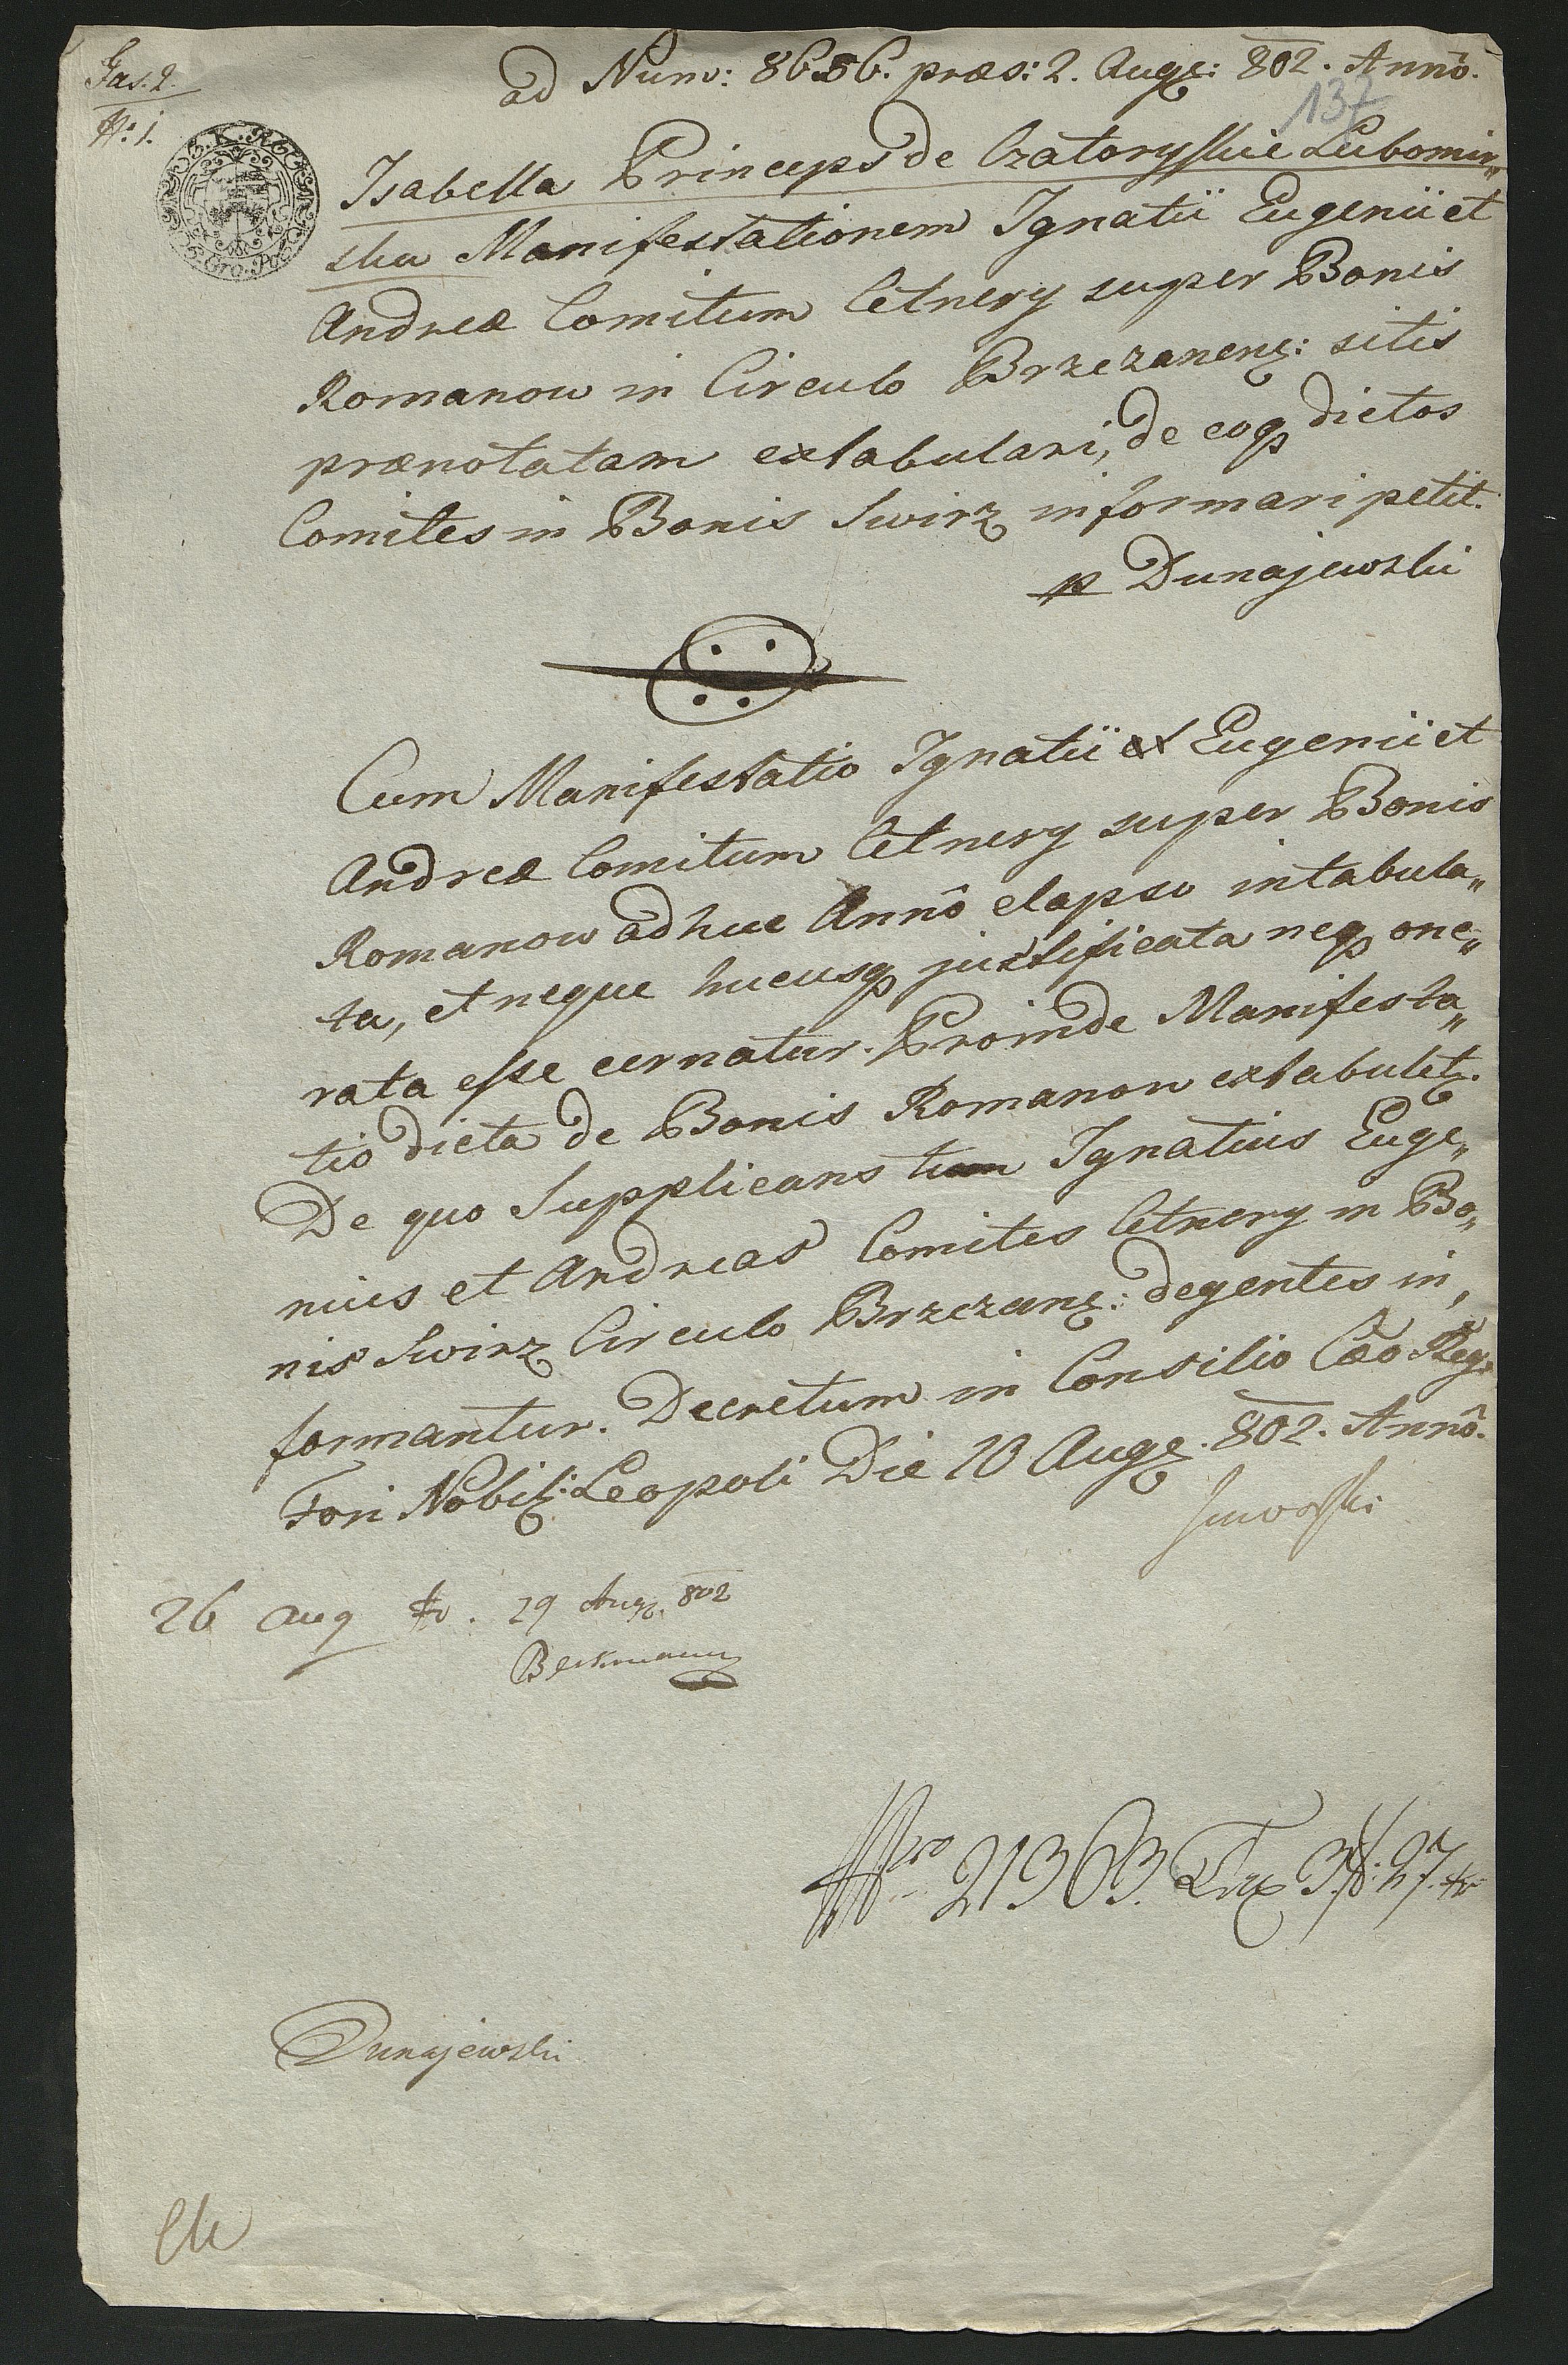 Fas. 2.
N: 1.
ad Num: 8656. præs: 2. Aug: 802. Annô.
137
Isabella Princeps de Czatoryskie Lubomir„
ska Manifestationem Ignatii Eugenii et
Andreæ Comitum Cetnery super Bonis
Romanow in Circulo Brzezanens: sitis
prænotatam extabulari, de eoq dictos
Comites in Bonis Swirz informari petit.
p Dunajewski
Cum Manifestatio Ignatii et Eugenii et
Andreæ Comitum Cetnery super Bonis
Romanow adhuc Annô elapso intabula„
ta, et neque hucusq justificata neq one„
rata esse cernatur. Proinde Manifesta„
tio dicta de Bonis Romanow extabulet.
De quo Supplicans tum Ignatius Euge„
nius et Andreas Comites Cetnery in Bo„
nis Swirz Circulo Brzezans: degentes in„
formantur. Decretum in Consilio Cæo Reg.
Fori Nobil: Leopoli Die 10 Aug. 802. Annô.
26 Aug
29 Aug. 802
Nro 21363. Tax 3 f: 27. kr
Dunajewski